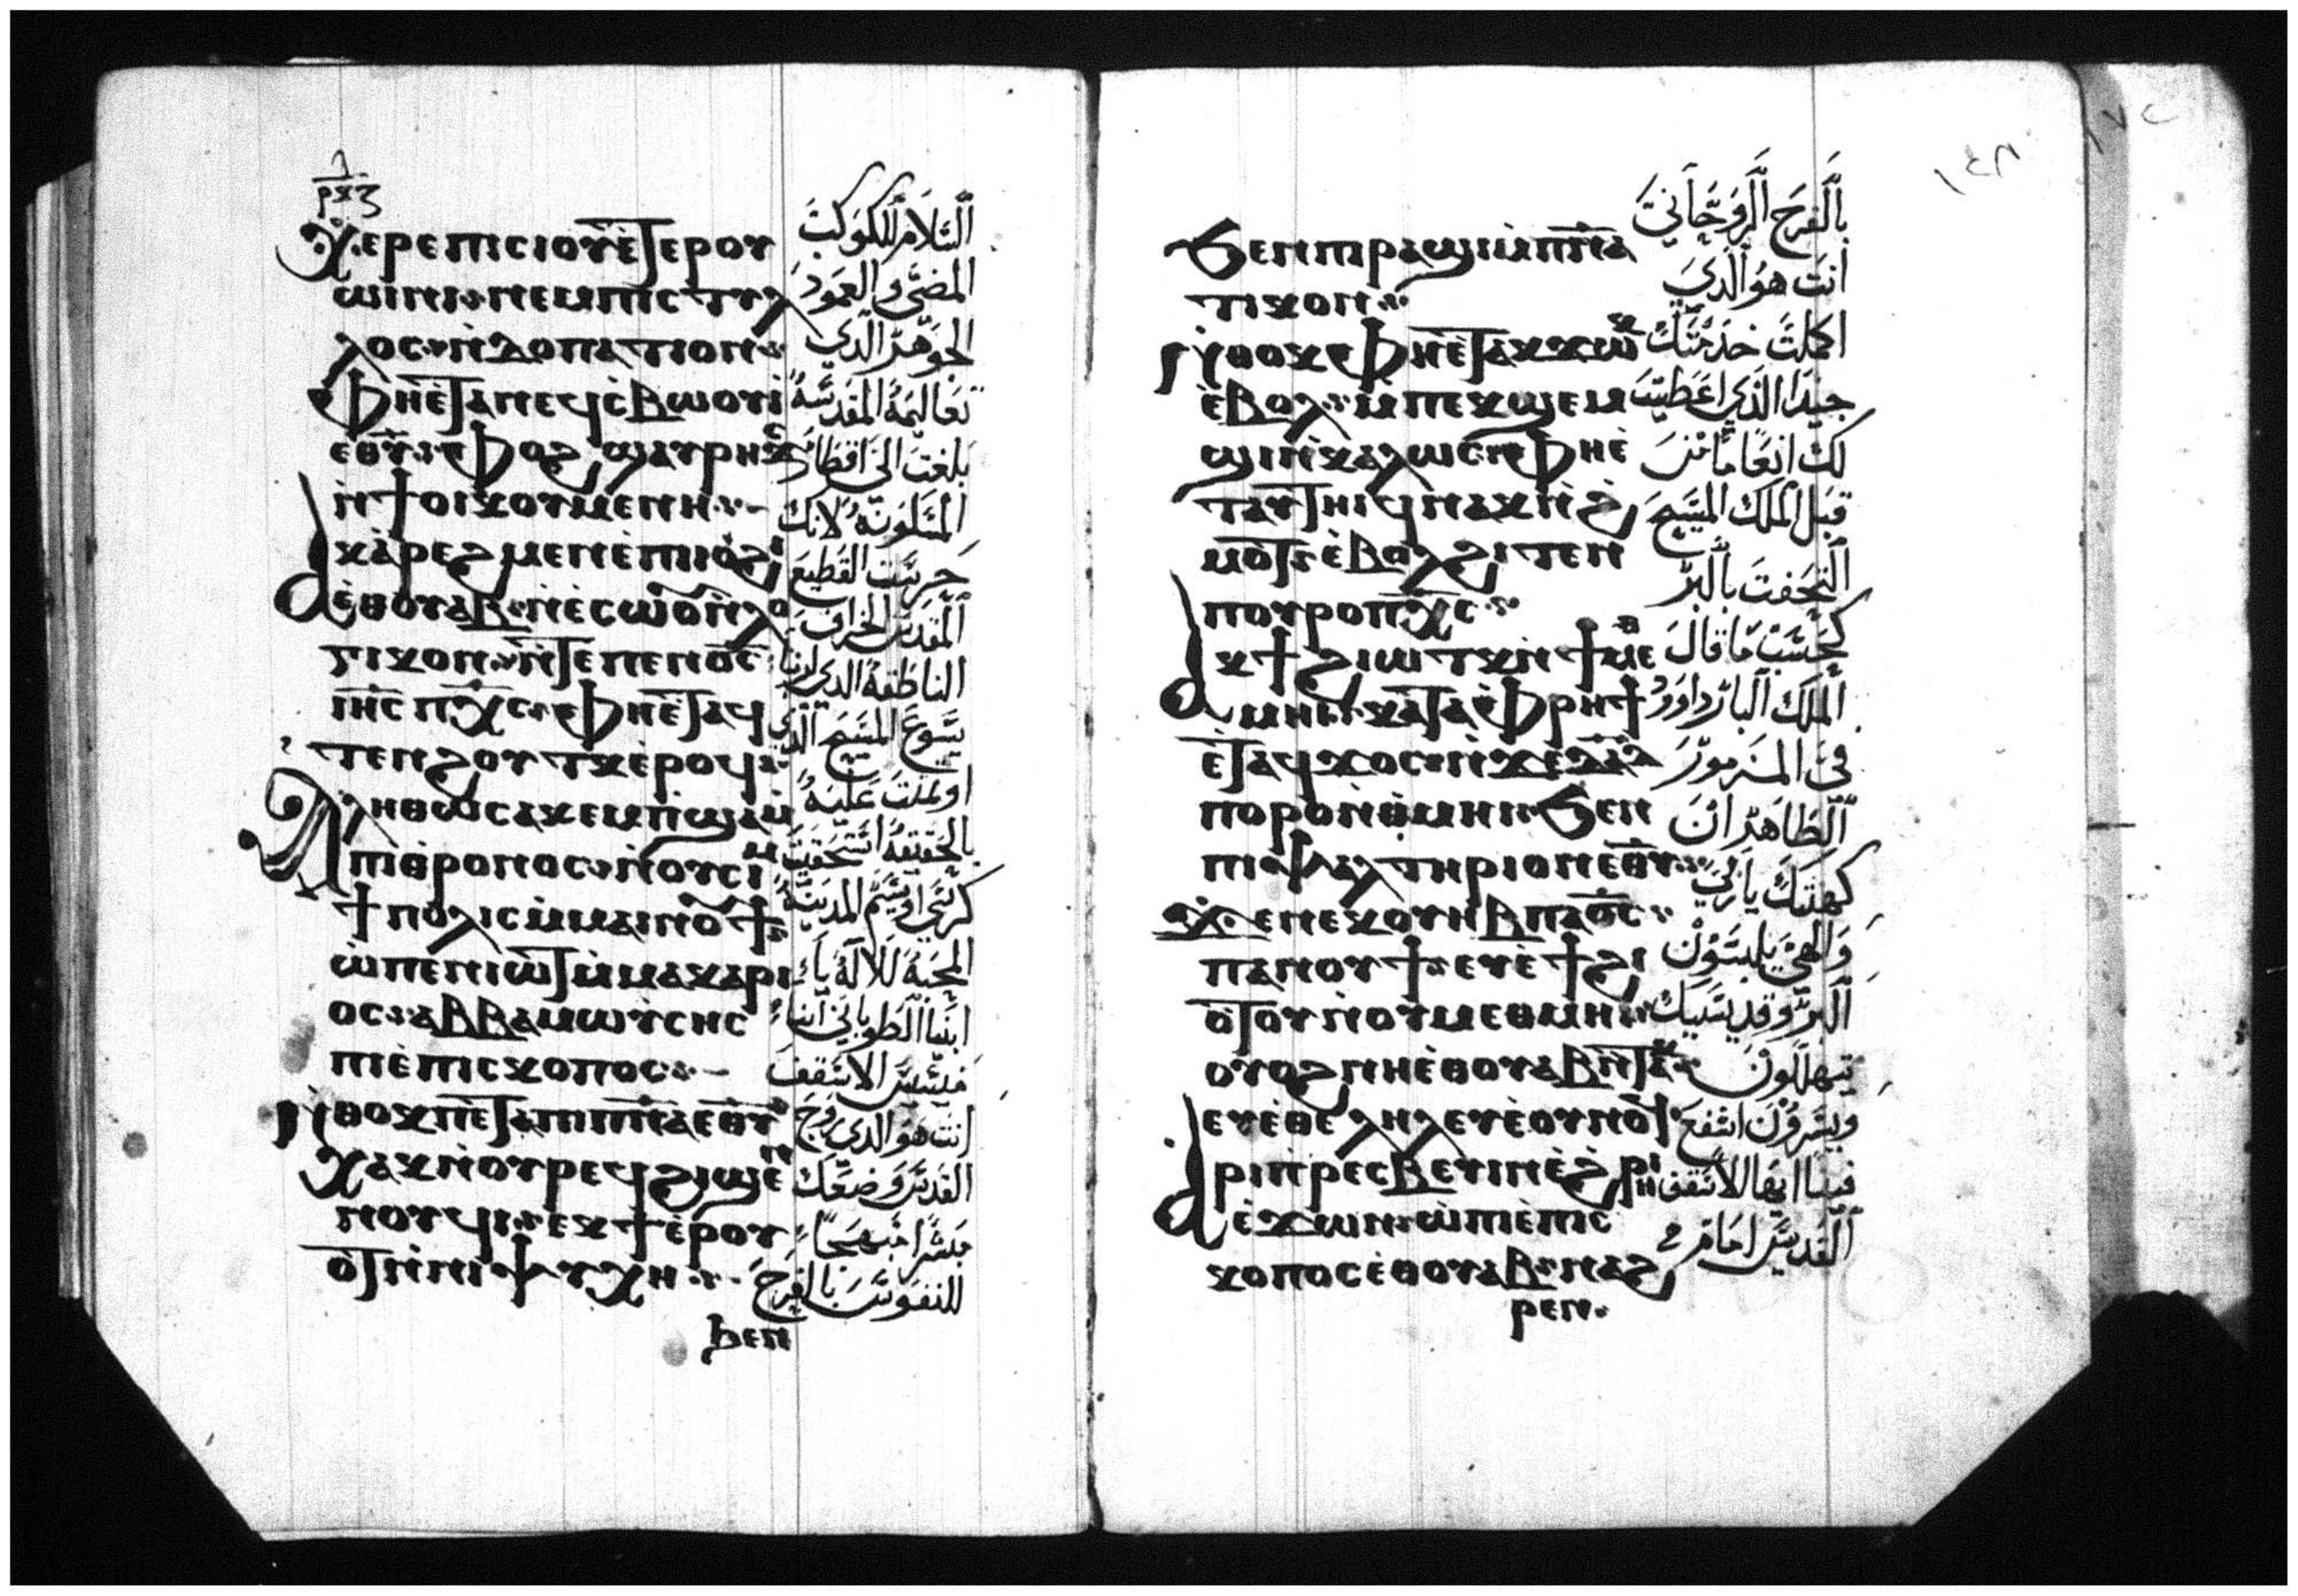 ⲣⲕⲍ
Ⲭⲉⲣⲉ ⲡⲓⲥⲓⲟⲩ ⲉⲧⲉⲣⲟⲩ
ⲱⲓⲛⲓ ⲛⲉⲙ ⲡⲓⲥⲧⲩ
ⲗⲟⲥ
Ⲫⲏⲉⲧⲁ ⲛⲉϥⲥⲃⲱⲟⲩⲓ
ⲉⲑⲩ ⲫⲟϩ ϣⲁⲩⲣⲏϫ
ⲛϯⲟⲓⲕⲟⲩⲙⲉⲛⲏ
Ⲁⲕⲁⲣⲉϩ ⲙⲉⲛ ⲉⲡⲓⲟϩⲓ
ⲉⲑⲟⲩⲁⲃ ⲛⲉⲥⲱⲟⲩ ⲛⲗⲟ
ⲅⲓⲕⲟⲛ ⲛⲧⲉ ⲡⲉⲛⲟⲥ
ⲓⲏⲥ ⲡⲭⲥ ⲫⲏⲉⲧⲁϥ
ⲧⲉⲛϩⲟⲩⲧⲕ ⲉⲣⲟϥ
Ⲁⲗⲏⲑⲱⲥ ⲁⲕⲉⲙⲡϣⲁ ⲙ
ⲡⲓⲑⲣⲟⲛⲟⲥ ⲛⲟⲩⲥⲓⲙ
ϯⲡⲟⲗⲓⲥ ⲙⲙⲁⲓⲛⲟⲩϯ
ⲱ ⲡⲉⲛⲓⲱⲧ ⲙⲙⲁⲕⲁⲣⲓ
ⲟⲥ ⲁⲃⲃⲁ ⲙⲱⲩⲥⲏⲥ
ⲡⲓⲉⲡⲓⲥⲕⲟⲡⲟⲥ
Ⲛⲑⲟⲕ ⲡⲉⲧⲁ ⲡⲓⲡⲛⲁ ⲉⲑⲩ
ⲭⲁⲕ ⲛⲟⲩⲣⲉϥϩⲓϣⲉⲛ
ⲛⲟⲩϥⲓ ⲉⲕϯ ⲉⲣⲟⲩ
ⲟⲧ ⲛⲛⲓⲯⲩⲭⲏ
ϧⲉⲛ
السلام للكوكب
المضي والعمود
الجوهر الذي
تعاليمه المقدسة
بلغت الى اقطار
المسكونة لانك
حرست القطيع
المقدس الخراف
الناطقة الذي لربنا
يسوع المسيح الذي
اوتمنت عليه
بالحقيقة استحقيت
كرسي اوسيم المدينة
المحبة للاله يا
ابينا الطوباني انبا
الاسقف
انت هو الذي روح
القدس وضعك
مبشرا مبهجا
للنفوس بالفرح
١٢٨
ϧⲉⲛ ⲡⲓⲣⲁϣⲓ ⲙⲡⲛⲁ
ⲧⲓⲕⲟⲛ
Ⲛⲑⲟⲕ ⲫⲏⲉⲧⲁⲕϫⲱⲕ
ⲉⲃⲟⲗ ⲙⲡⲉⲕϣⲉⲙ
ϣⲓ ⲛⲕⲁⲗⲱⲥ ⲫⲏⲉ
ⲧⲁⲩⲧⲏⲓϥ ⲛⲁⲕ ⲛϩ
ⲙⲟⲧ ⲉⲃⲟⲗ ϩⲓⲧⲉⲛ
ⲡⲟⲩⲣⲟ ⲡⲭⲥ
Ⲁⲕϯ ϩⲓⲱⲧⲕ ⲛϯⲙⲉⲑ
ⲙⲏⲓ ⲕⲁⲧⲁ ⲫⲣⲏϯ
ⲉⲧⲁϥϫⲟⲥ ⲛϫⲉ ⲇⲁⲇ
ⲡⲟⲩⲣⲟ ⲛⲑⲙⲏⲓ ϧⲉⲛ
ⲡⲓⲯⲁⲗⲧⲏⲣⲓⲟⲛ ⲉⲑⲩ
ϫⲉ ⲛⲉⲕⲟⲩⲏⲃ ⲡⲁⲟⲥ
ⲡⲁⲛⲟⲩϯ ⲉⲩⲉϯ ϩⲓ
ⲟⲧⲟⲩ ⲛⲟⲩⲙⲉⲑⲙⲏⲓ
ⲟⲩⲟϩ ⲛⲏⲉⲑⲟⲩⲁⲃ ⲛⲧⲁⲕ
ⲉⲩⲉⲑⲉⲗⲏⲗ ⲉⲩⲉⲟⲩⲛⲟϥ
Ⲁⲣⲓⲡⲣⲉⲥⲃⲉⲩⲓⲛ ⲉϩⲣⲏⲓ
ⲉϫⲱⲛ ⲱ ⲡⲓⲉⲡⲓⲥ
ⲕⲟⲡⲟⲥ ⲉⲑⲟⲩⲁⲃ ⲛⲁϩ
ⲣⲉⲛ
بالفرح الروحاني
انت هو الذي
اكملت خدمتك
جيدا الذي اعطيت
لك انعاما من
قبل الملك المسيح
التحفت بالبر
كحسب ما قال
الملك البار داوود
في المزمور
الطاهر ان
كهنتك يا ربي
والهي يلبسون
البر وقديسيك
يتهللون
ويسرون اشفع
فينا ايها الاسقف
القديس امام